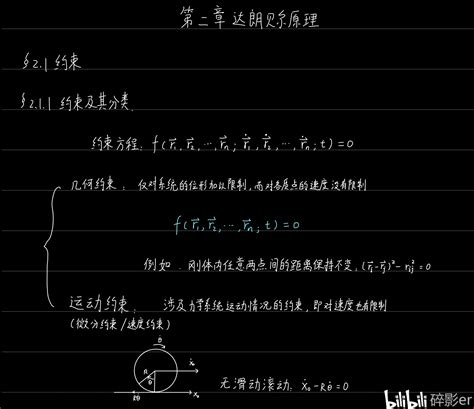 第二章 达朗贝尔原理
§2.1 约束
§2.1.1 约束及其分类
约束方程: f(r⃗₁, r⃗₂, ⋯, r⃗ₙ; ṙ⃗₁, ṙ⃗₂, ⋯, ṙ⃗ₙ; t) = 0
几何约束: 仅对系统的位形加以限制, 而对各质点的速度没有限制
f(r⃗₁, r⃗₂, ⋯, r⃗ₙ; t) = 0
例如. 刚体内任意两点间的距离保持不变, (r⃗ᵢ-r⃗ⱼ)² - rᵢⱼ² = 0
运动约束: 涉及力学系统运动情况的约束, 即对速度也有限制
(微分约束/速度约束)
θ̇
R
θ
ẋ₀
x₀
无滑动滚动: ẋ₀ - Rθ̇ = 0
bilibili 碎影er